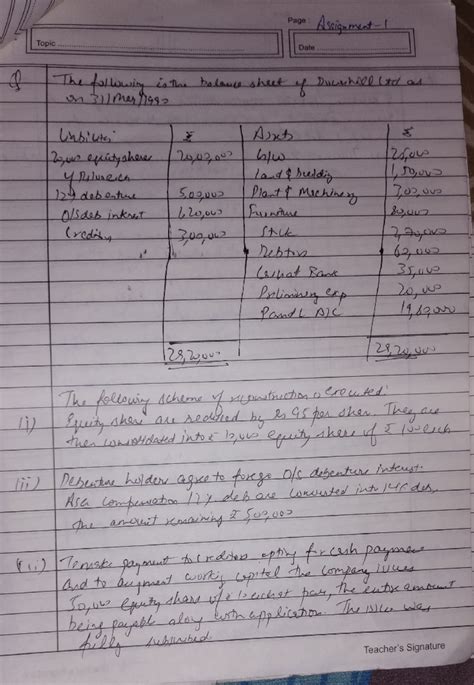 Page: Assignment-1
Topic
Date
Q The following is the balance sheet of Ltd as
on 31/Mar/1990
Liabilities ₹ Assets ₹
20,000 equity shares 20,00,000 G/W 25,000
of Rs 100 each Land & building 1,50,000
12% debenture 5,00,000 Plant & Machinery 3,00,000
O/S deb intrest 1,20,000 Furniture 80,000
Creditors 3,00,000 Stock
Debtors
Cash at Bank 35,000
Preliminary exp 20,000
P and L A/C
29,20,000 29,20,000
The following scheme of reconstruction is executed:
i) Equity share are reduced by Rs 95 per share. They are
then consolidated into 10,000 equity share of ₹ 100 each
ii) Debenture holders agree to forgo O/S debenture interest.
As a compensation 12% deb are converted into 14% deb,
the amount remaining ₹ 5,00,000
iii) To make payment to creditors opting for cash payment
and to augment working capital the company issues
50,000 equity share of each at par, the entire amount
being payable along with application. The issue was
fully subscribed.
Teacher's Signature